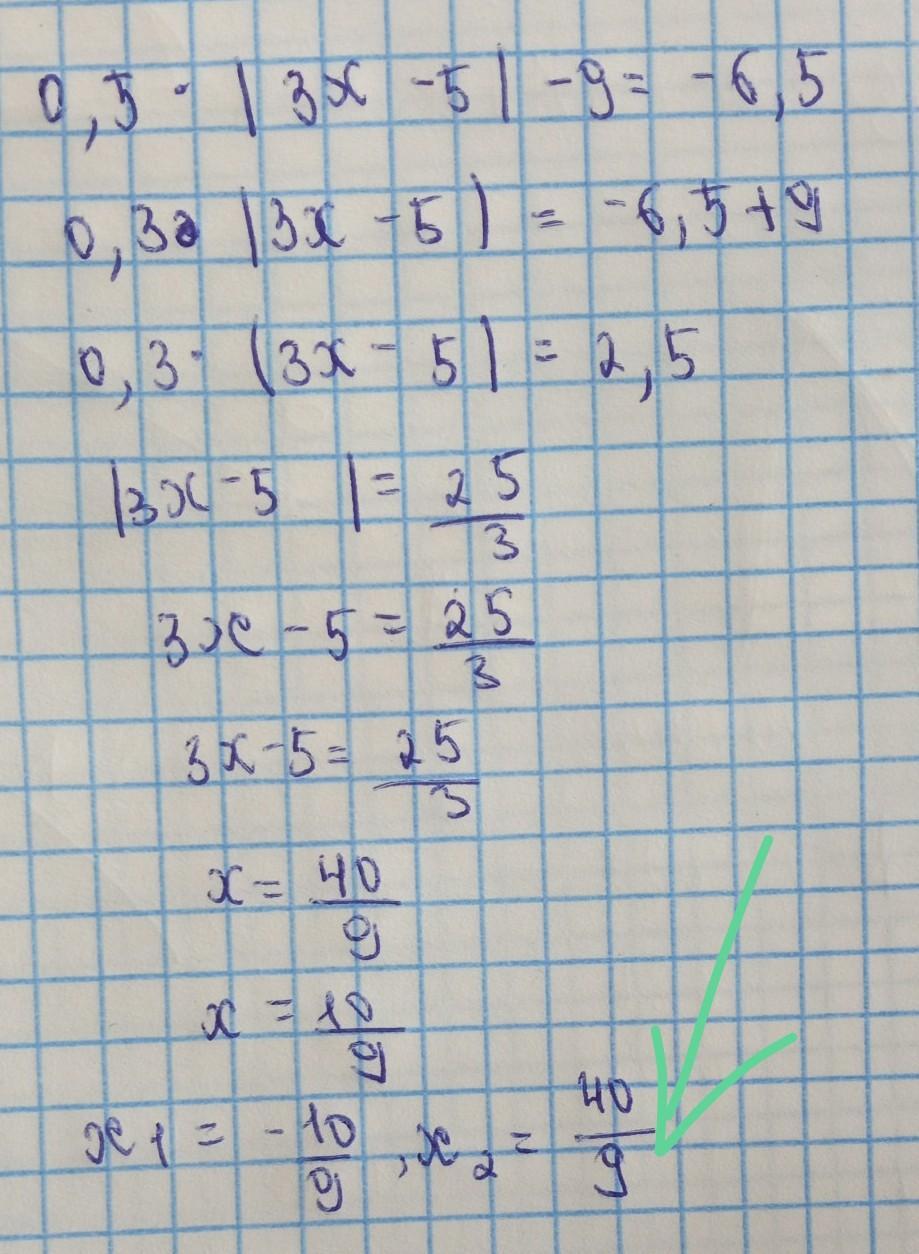 0,5 · |3x - 5| - 9 = -6,5
0,3 · |3x - 5| = -6,5 + 9
0,3 · |3x - 5| = 2,5
|3x - 5| = 25/3
3x - 5 = 25/3
3x - 5 = 25/3
x = 40/9
x = 10/9
x₁ = -10/9, x₂ = 40/9